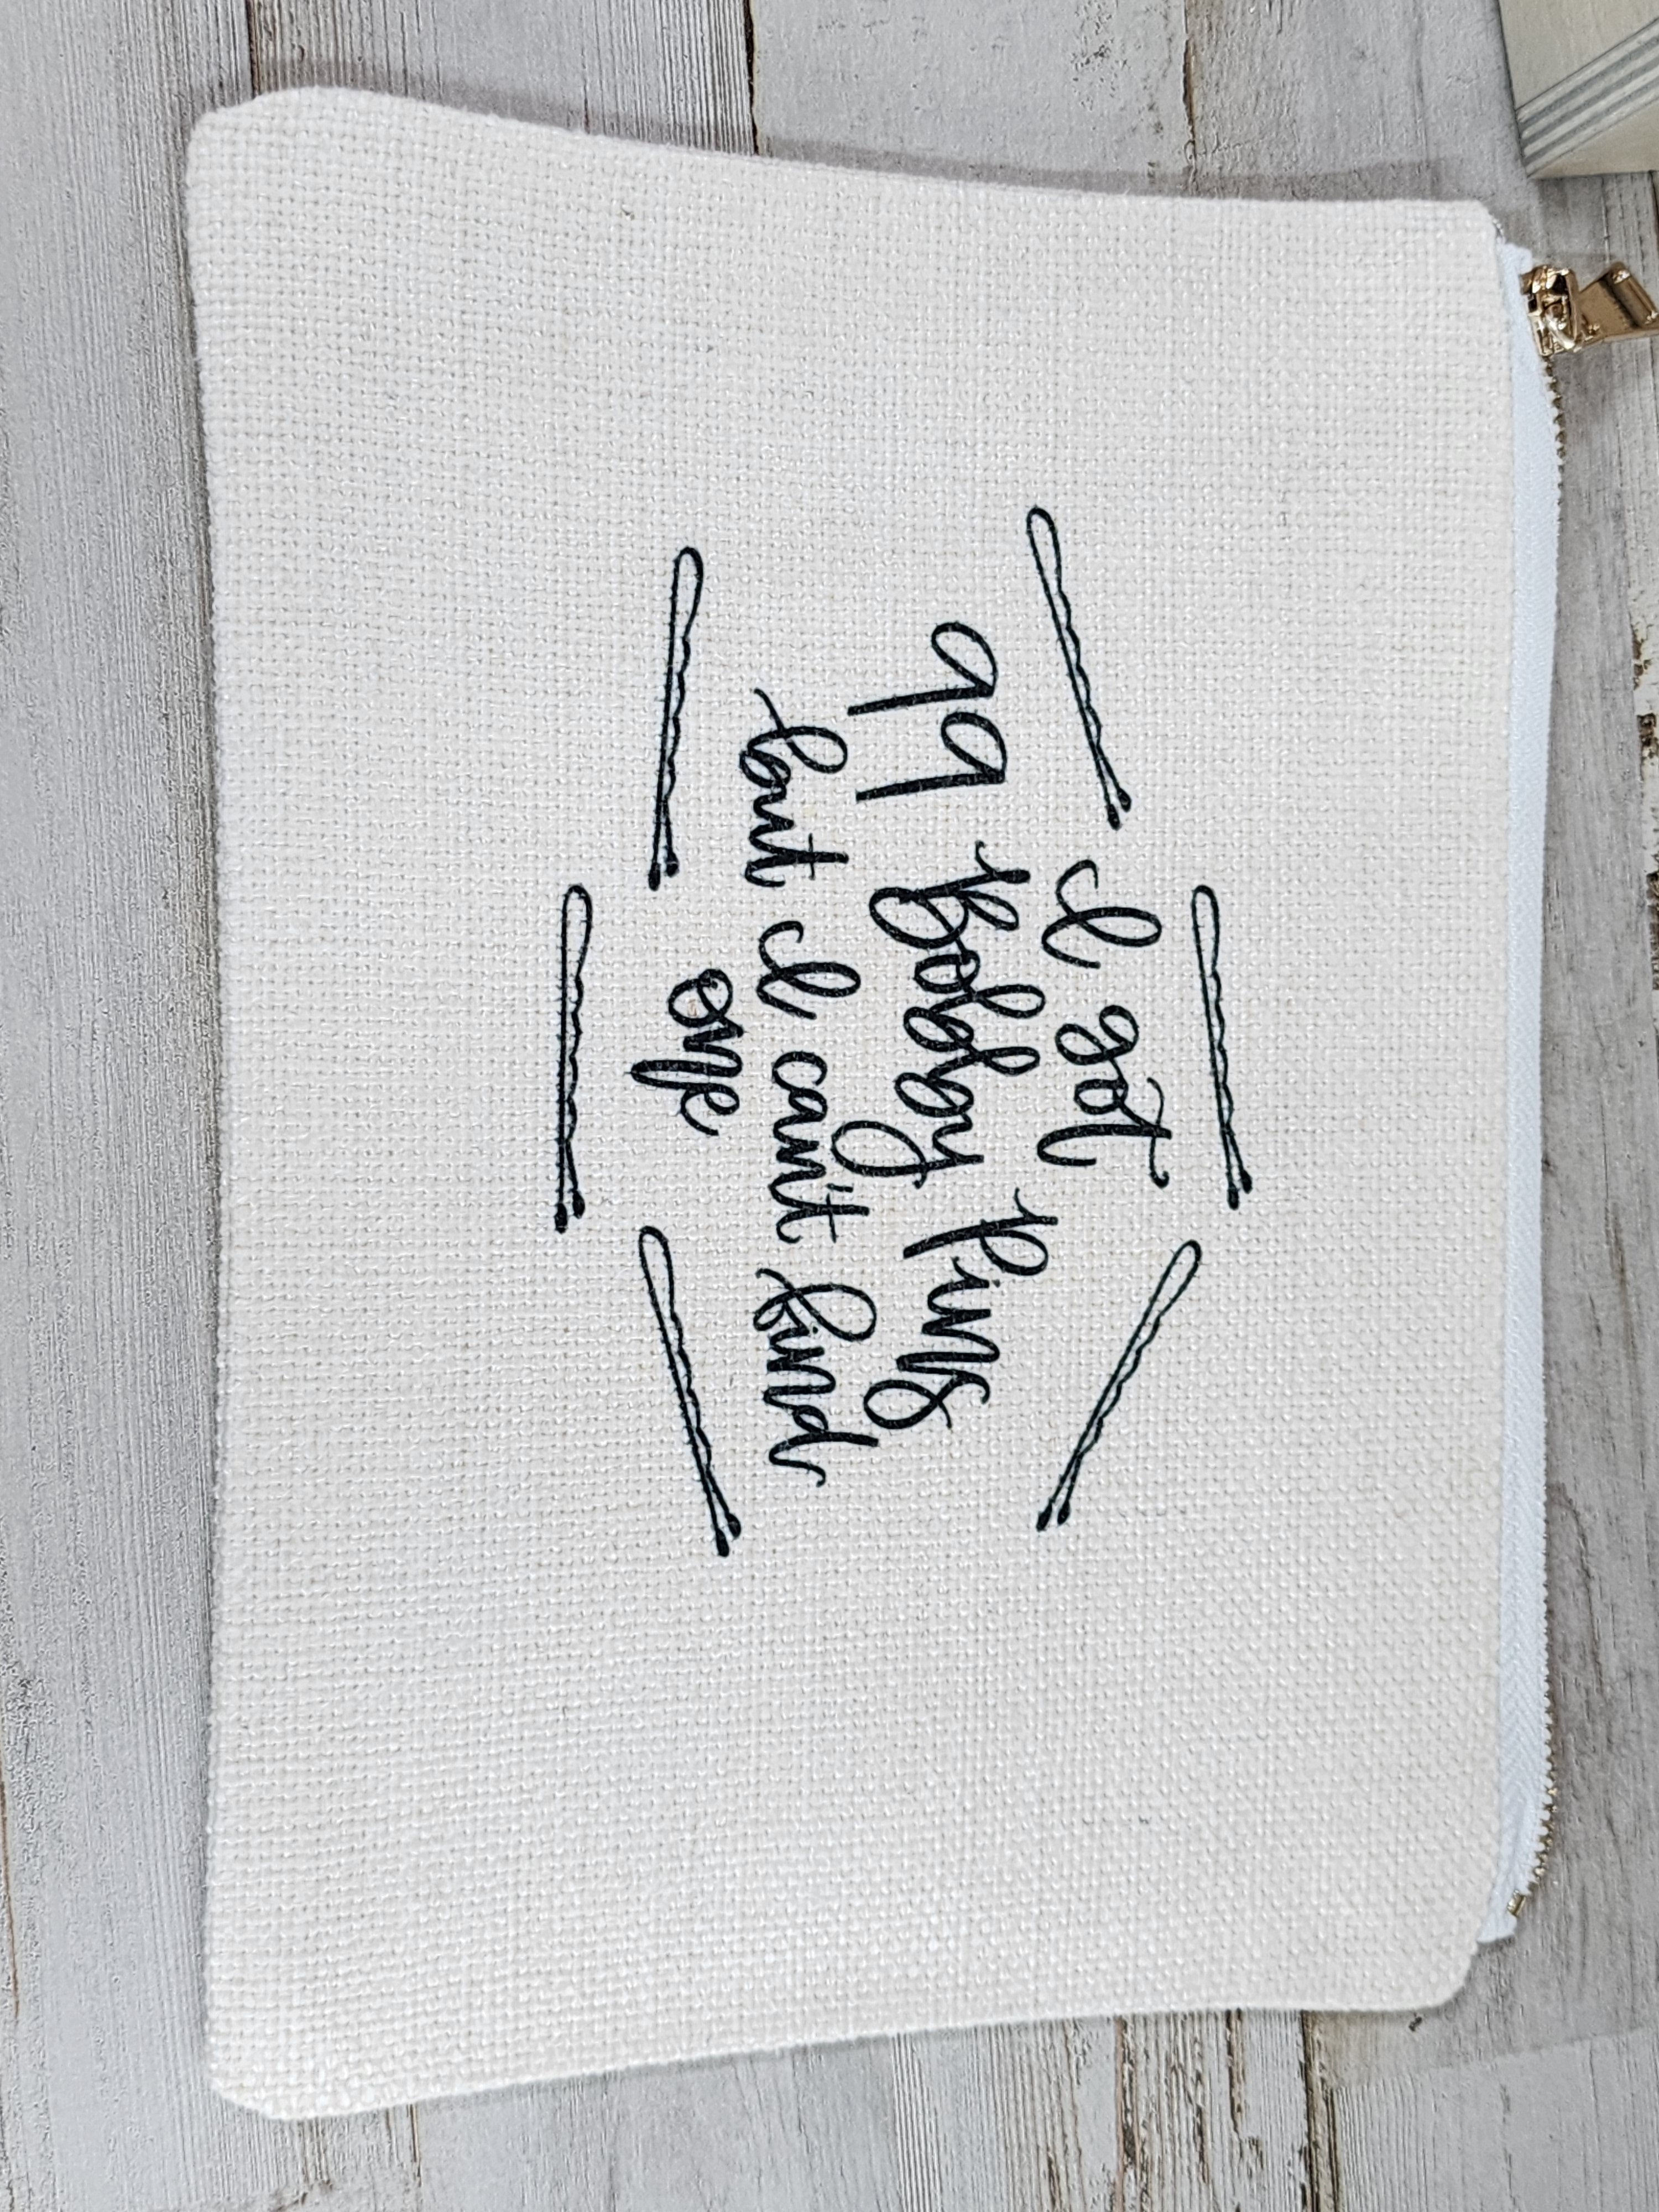 I got
99 Bobby Pins
but I can't find
one